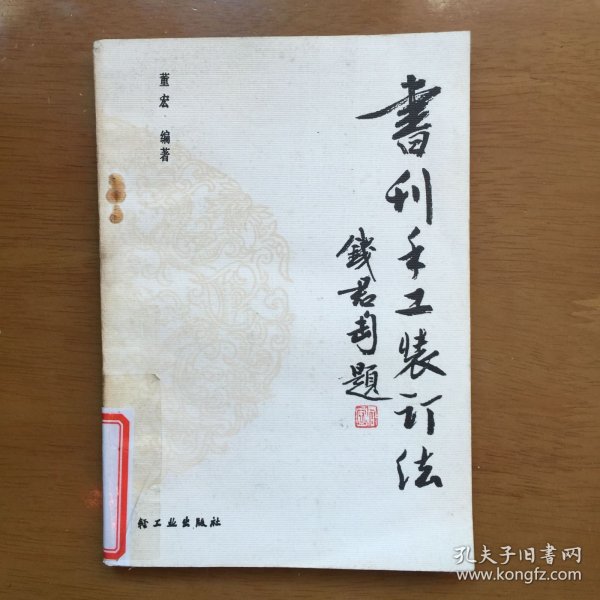 書刊手工装订法
錢君匋題
董宏 编著
轻工业出版社
孔夫子旧书网
www.kongfz.com